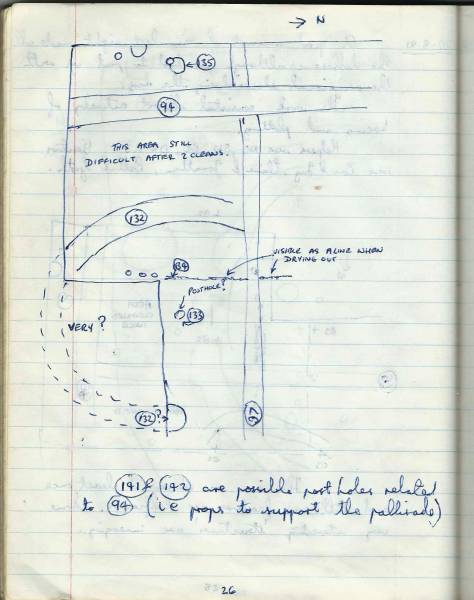 → N
135
94
THIS AREA STILL
DIFFICULT AFTER 2 CLEANS.
132
134
VISIBLE AS A LINE WHEN
DRYING OUT
POSTHOLE?
133
VERY ?
132?
97
141 & 142 are possible post holes related
to 94 (i.e props to support the pallisade)
26